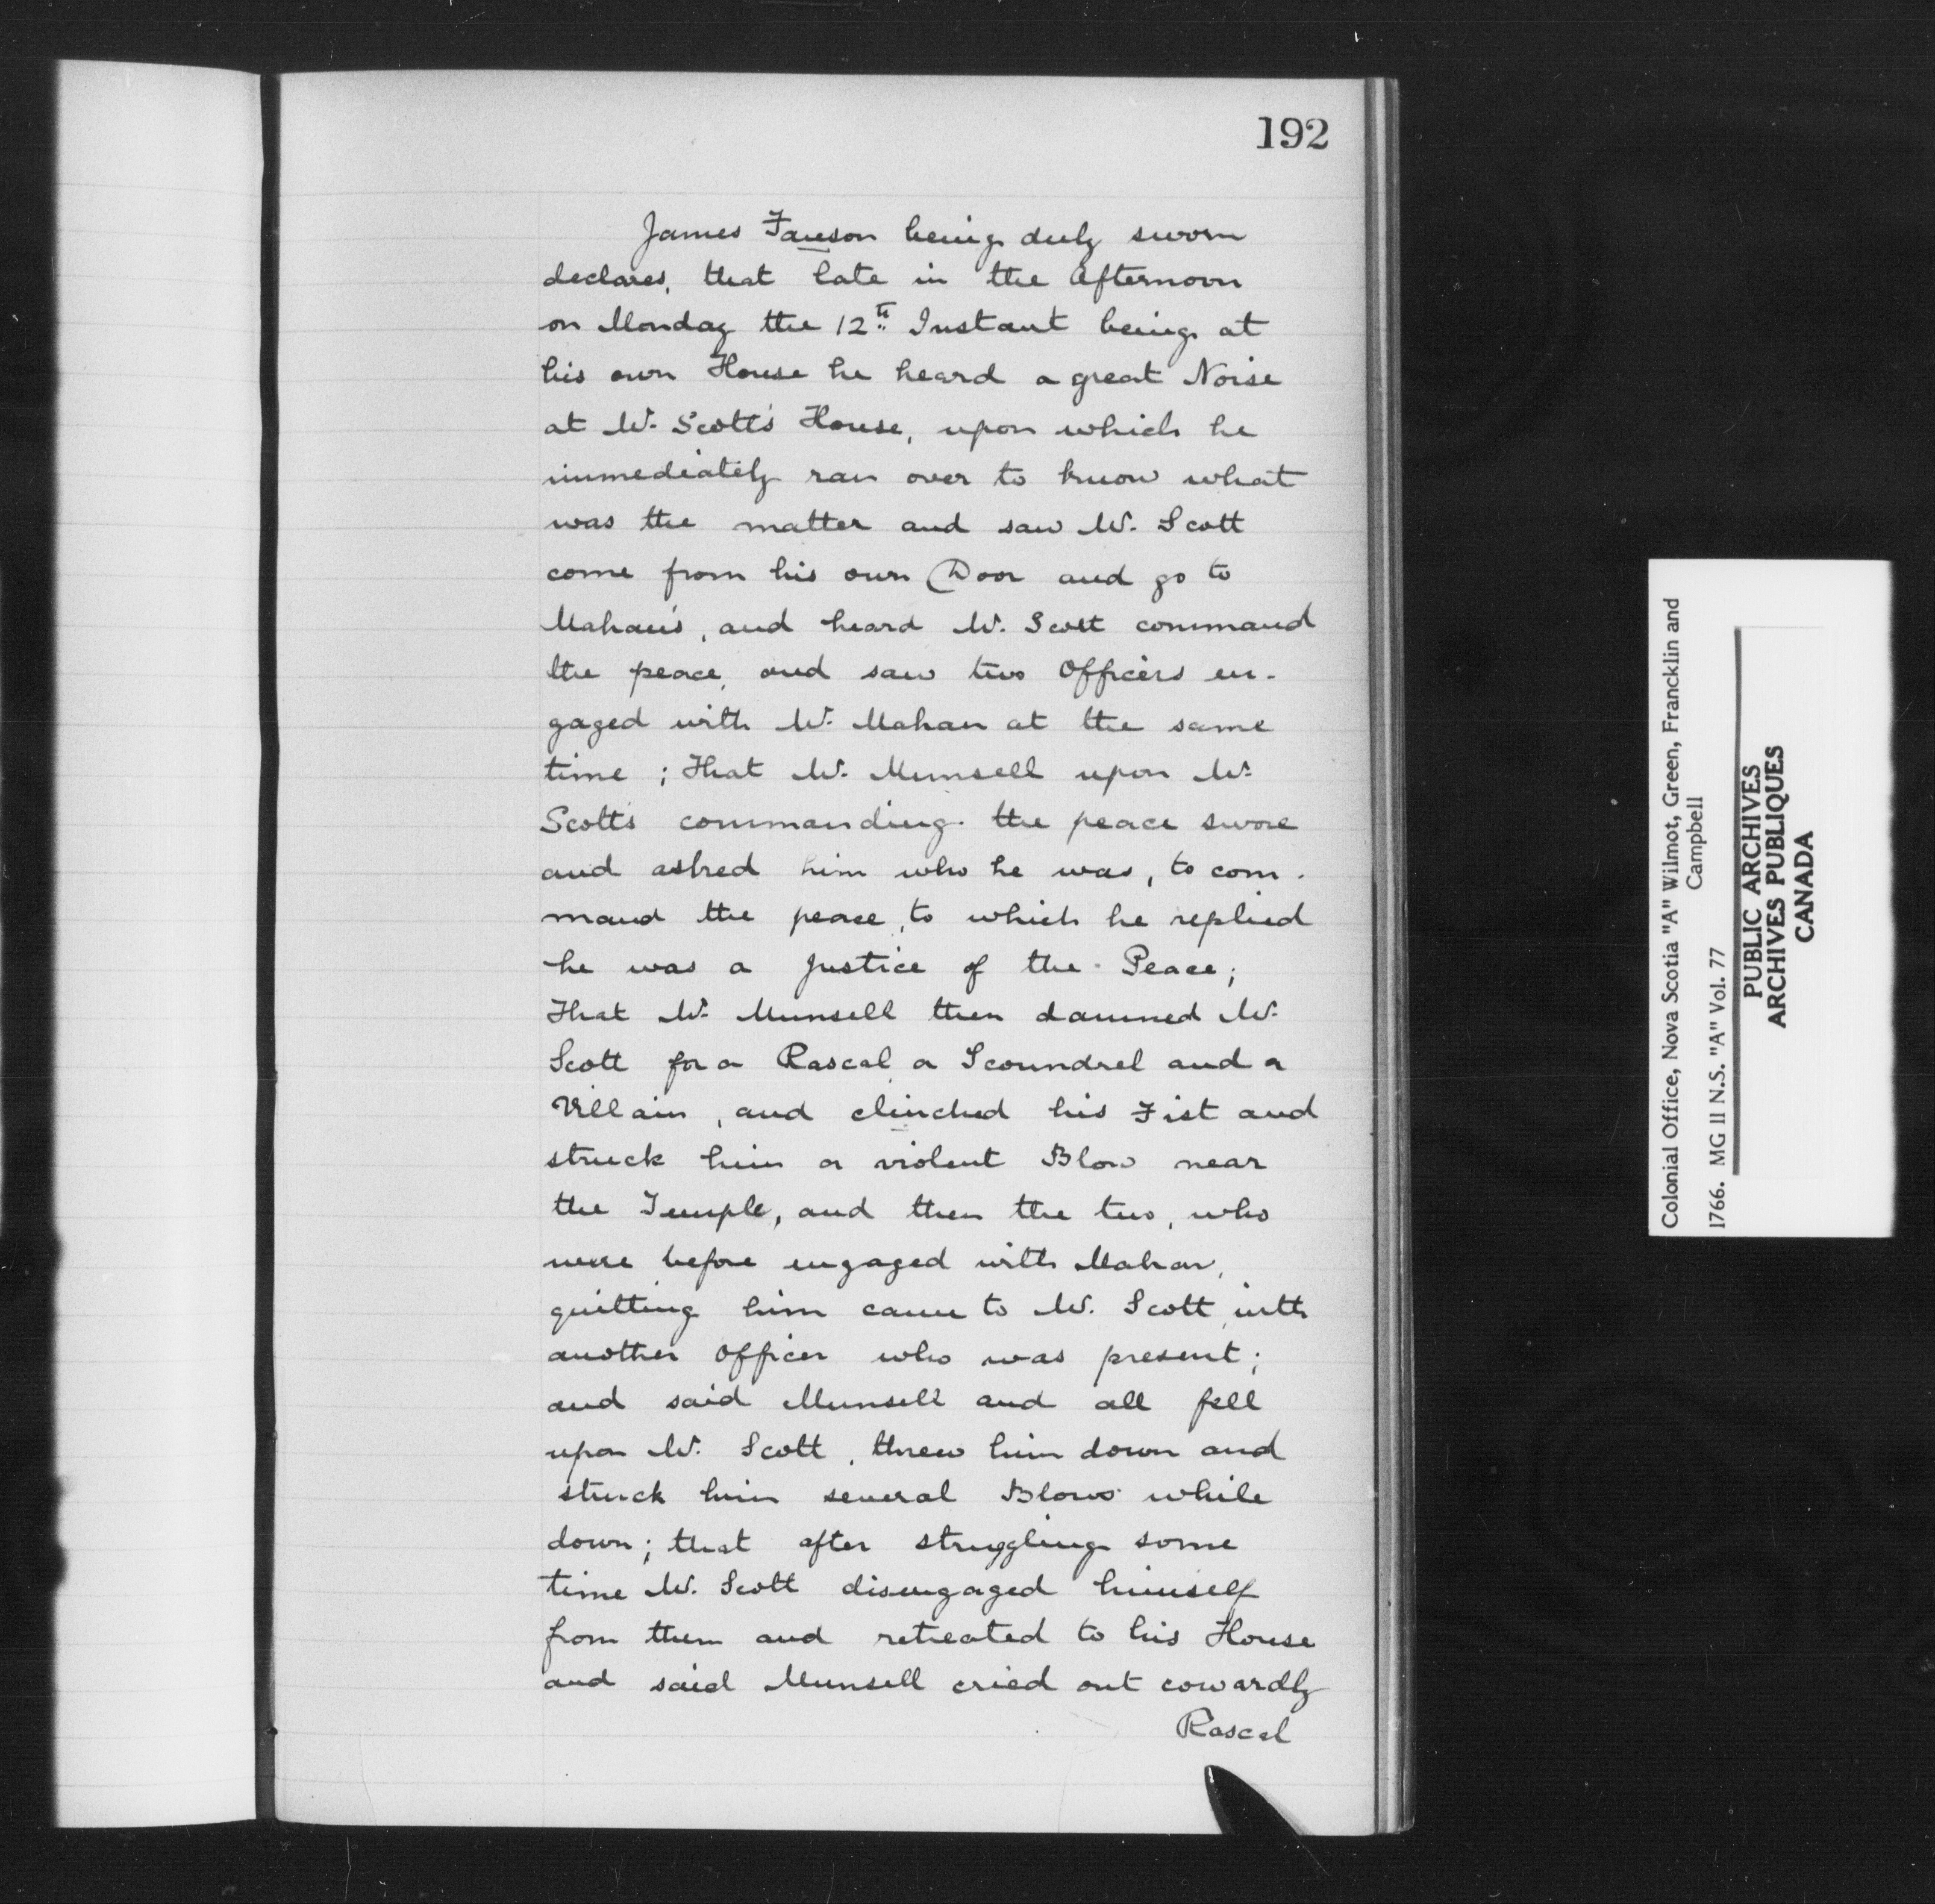 192
James Fawson being duly sworn
declares, that late in the Afternoon
on Monday the 12th Instant being at
his own House he heard a great Noise
at Mr. Scott's House, upon which he
immediately ran over to know what
was the matter and saw Mr. Scott
come from his own Door and go to
Mahan's, and heard Mr. Scott command
the peace, and saw two Officers en-
gaged with Mr. Mahan at the same
time; That Mr. Munsell upon Mr.
Scott's commanding the peace swore
and asked him who he was, to com-
mand the peace, to which he replied
he was a Justice of the Peace;
That Mr. Munsell then damned Mr.
Scott for a Rascal a Scoundrel and a
Villain, and clinched his Fist and
struck him a violent Blow near
the Temple, and then the two, who
were before engaged with Mahan,
quitting him came to Mr. Scott, with
another Officer who was present;
and said Munsell and all fell
upon Mr. Scott, threw him down and
struck him several Blows while
down; that after struggling some
time Mr. Scott disengaged himself
from them and retreated to his House
and said Munsell cried out cowardly
Rascal
Colonial Office, Nova Scotia "A" Wilmot, Green, Francklin and
Campbell
1766. MG 11 N.S. "A" Vol. 77
PUBLIC ARCHIVES
ARCHIVES PUBLIQUES
CANADA